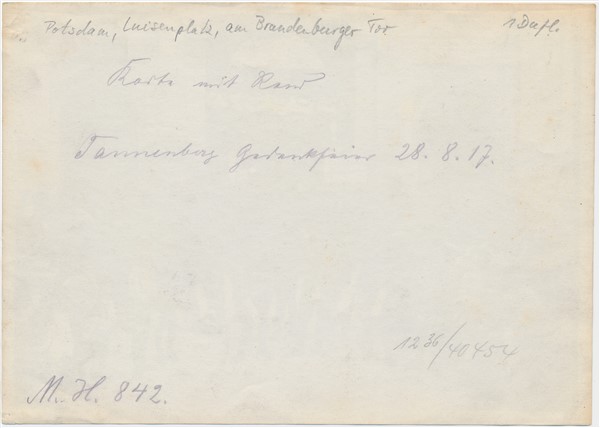 Potsdam, Luisenplatz, am Brandenburger Tor
1 Dupl.
Karte mit Rand
Tannenberg Gedenkfeier 28. 8. 17.
12 36/40454
M. H. 842.